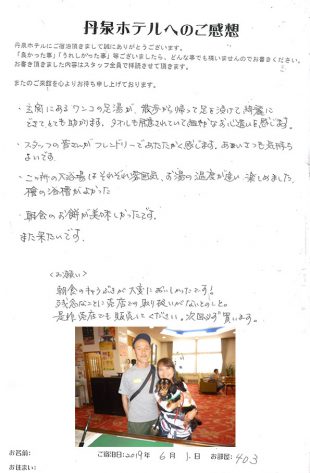 丹泉ホテルへのご感想
丹泉ホテルにご宿泊頂きまして誠にありがとうございます。
「良かった事」「うれしかった事」等ございましたら、どんな事でも構いませんのでお書きください。
お書き頂きました内容はスタッフ全員で拝読させて頂きます。
またのご来館を心よりお待ち申し上げております。
・玄関にあるワンコの足湯が、散歩から帰って足を浸けて綺麗に
できとても助かります。タオルも用意されていて細やかなお心遣いを感じます。
・スタッフの皆さんがフレンドリーであたたかく感じます。あいさつも気持ち
よいです。
・二ヶ所の大浴場はそれぞれ雰囲気、お湯の温度が違い楽しめました。
檜の浴槽がよかった
・朝食のお餅が美味しかったです。
また来たいです。
〈お願い〉
朝食のきゃらぶきが大変においしかったです！
残念なことに売店での取り扱いがないとのこと。
是非売店でも販売してください。次回必ず買います。
お名前:
ご宿泊日:2019年 6月 1日 お部屋:403
お住まい: